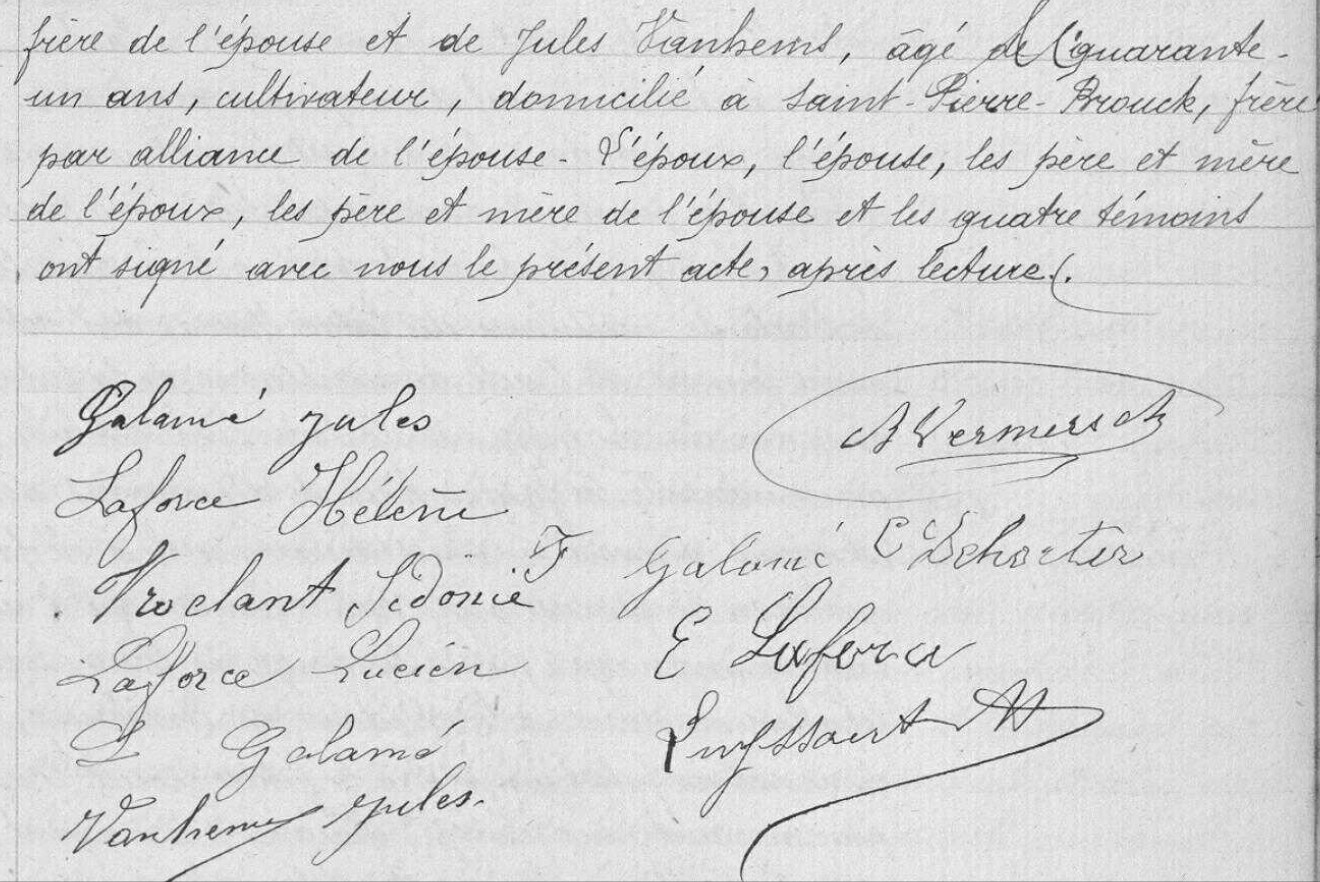 frère de l'épouse et de Jules Vanhems, âgé de quarante-
un ans, cultivateur, domicilié à Saint-Pierre-Brouck, frère
par alliance de l'épouse - L'époux, l'épouse, les père et mère
de l'époux, les père et mère de l'épouse et les quatre témoins
ont signé avec nous le présent acte, après lecture.
Galamé jules
Laforce Hélène
Vroelant Sidonie
Laforce Lucien
L Galamé
Vanhems jules.
A Vermersch
F Galamé C Dehorter
E Laforce